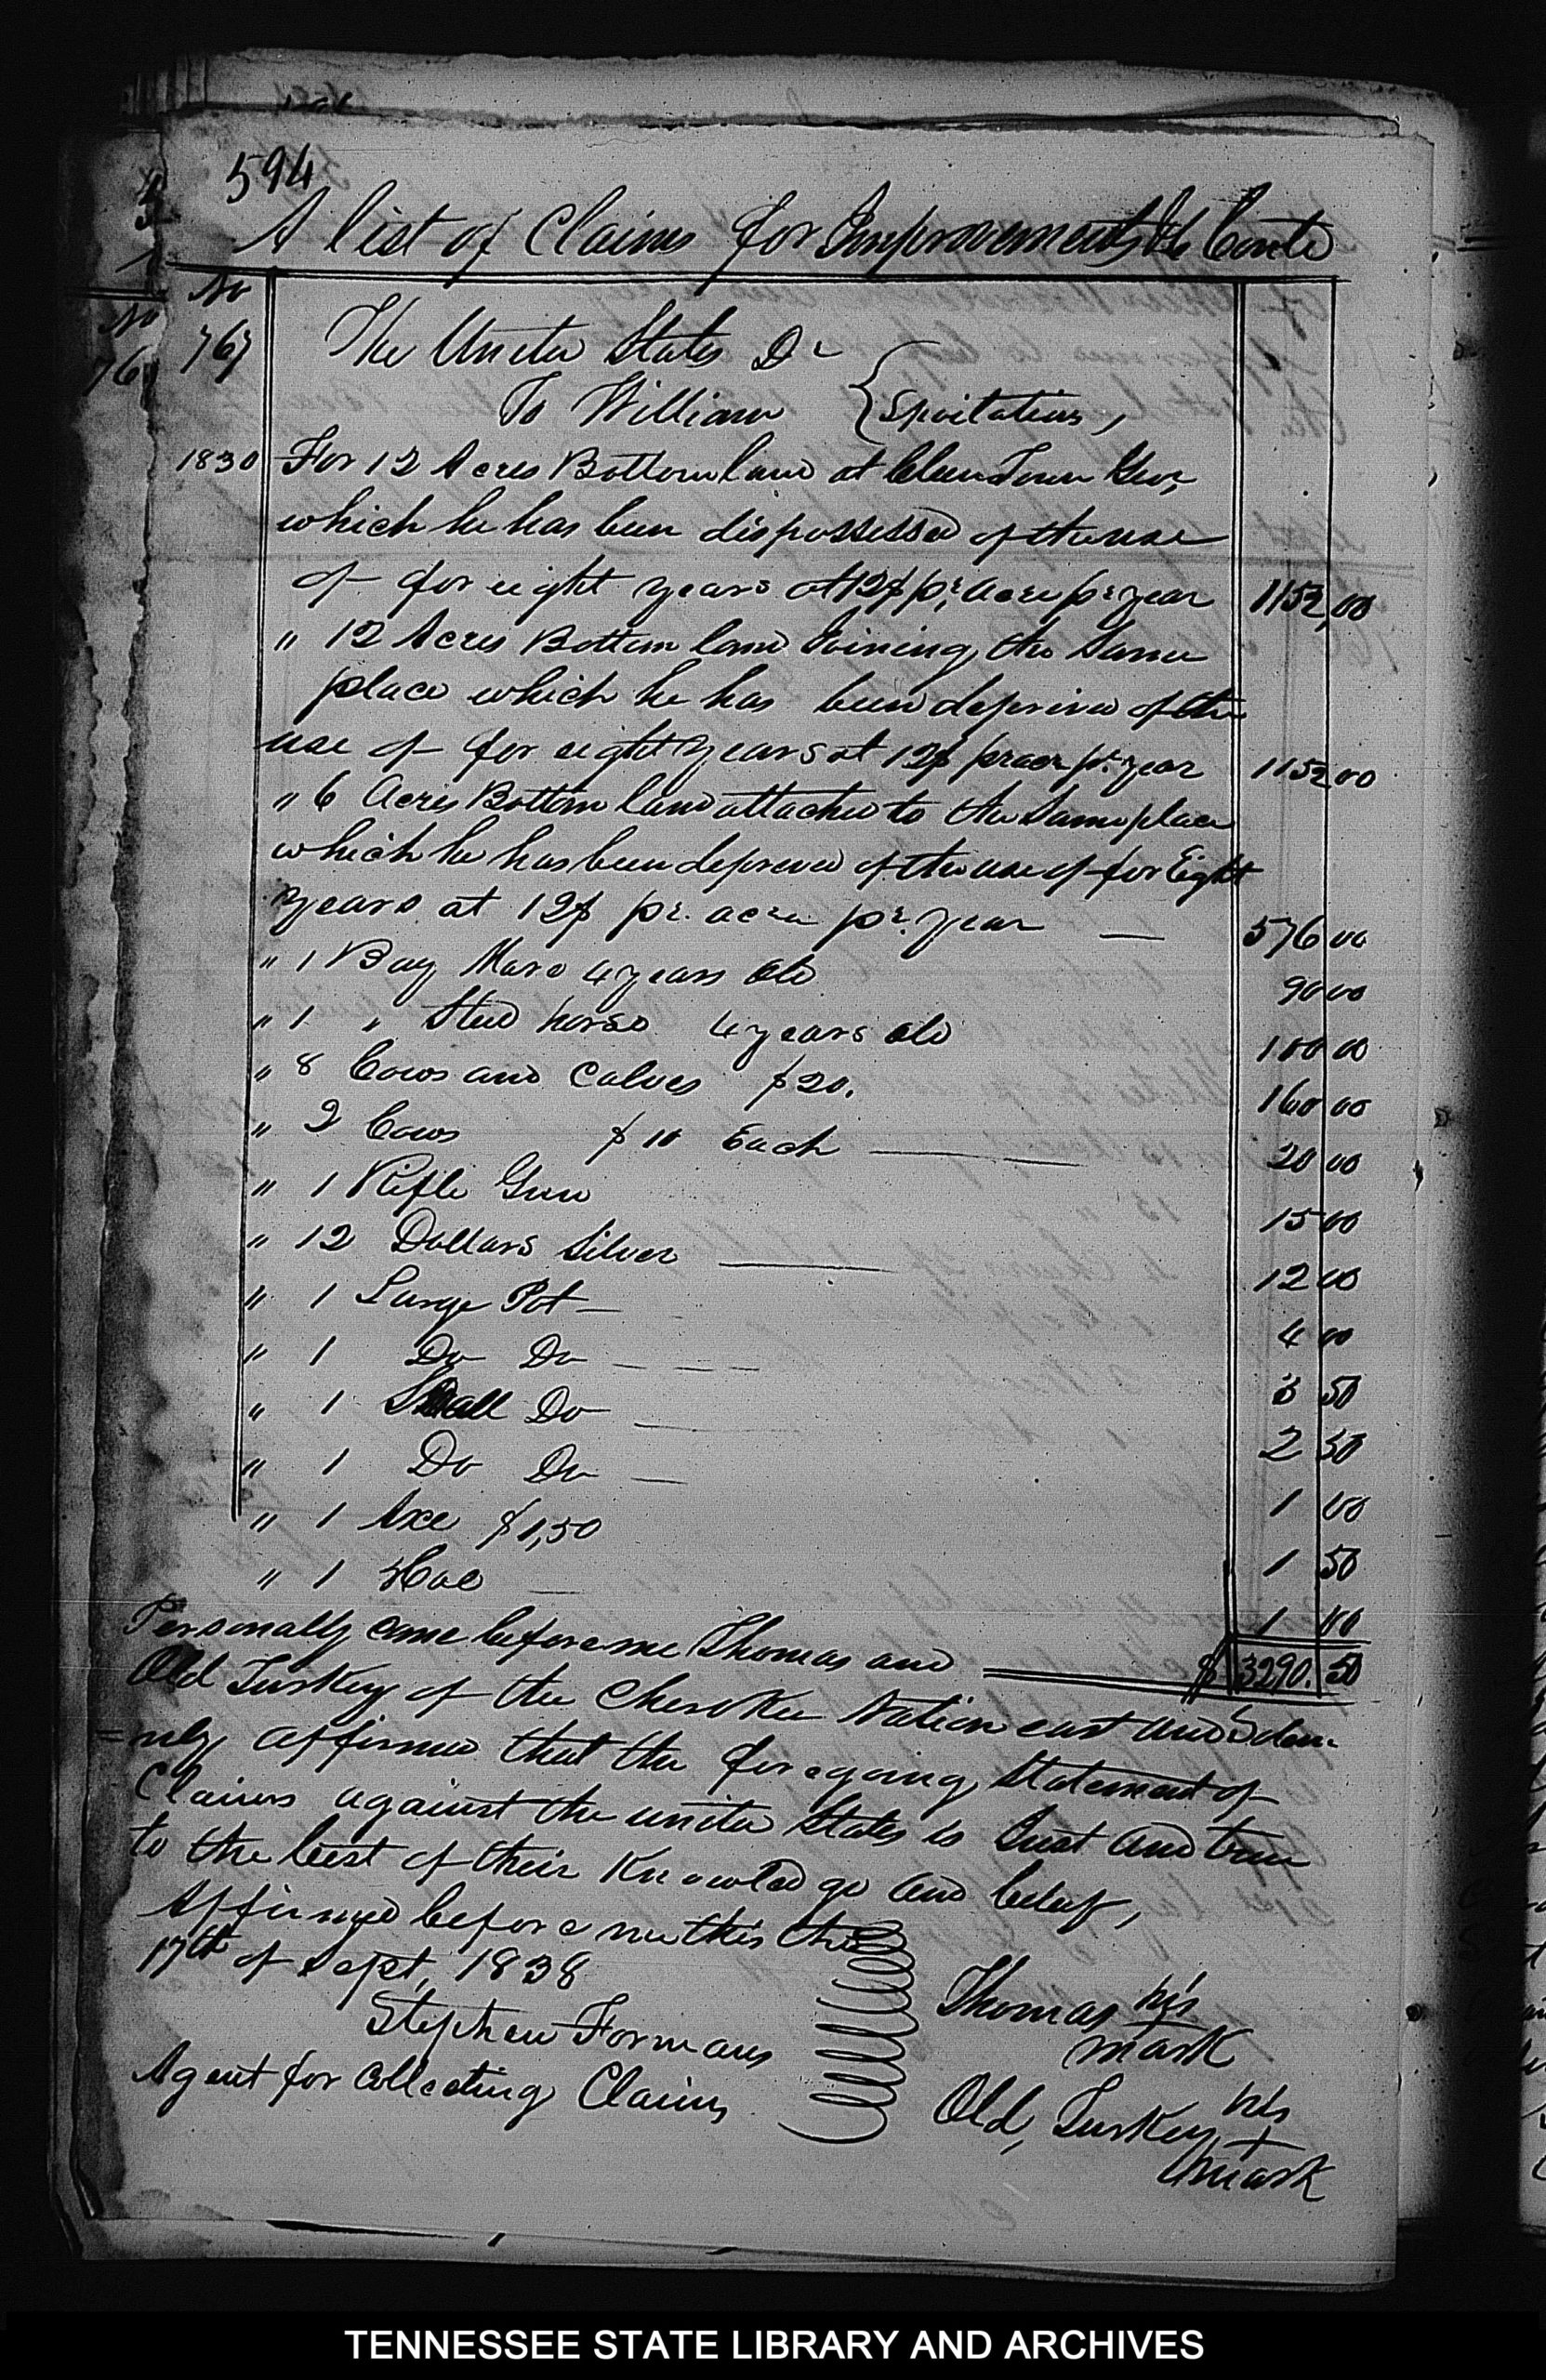 594
A list of Claims for Improvements &c Contd
No
767
The United States Dr
To William { Spoilations,
1830 For 12 Acres Bottom land at Town Geo,
which he has been dispossessed of the use
of for eight years at 12$ pr. acre pr year 1152,00
" 12 Acres Bottom land Joining the Same
place which he has been deprived of the
use of for eight years at 12$ pr acre pr. year 1152 00
" 6 Acres Bottom land attached to the Same place
which he has been deprived of the use of for Eight
years at 12$ pr. acre pr. year — 576 00
" 1 Bay Mare 4 years old 90 00
" 1 " Stud horse 4 years old 100 00
" 8 Cows and Calves $20. 160 00
" 2 Cows $10 Each — 20 00
" 1 Rifle Gun 15 00
" 12 Dollars Silver — 12 00
" 1 Large Pot — 4 00
" 1 Do Do — — — 3 50
" 1 Small Do — 2 50
" 1 Do Do — 1 00
" 1 Axe $1,50 1 50
" 1 Hoe — 1 00
Personally came before me Thomas and $ 3290.50
Old Turkey of the Cherokee Nation east and Solem
=nly affirmed that the foregoing Statement of
Claims against the united States is Just and true
to the best of their Knowledge and belief,
Affirmed before me this the
17th of Sept, 1838
Stephen Formans
Agent for Collecting Claims
Thomas his
mark
Old, Turkey his
+
mark
No
76
TENNESSEE STATE LIBRARY AND ARCHIVES